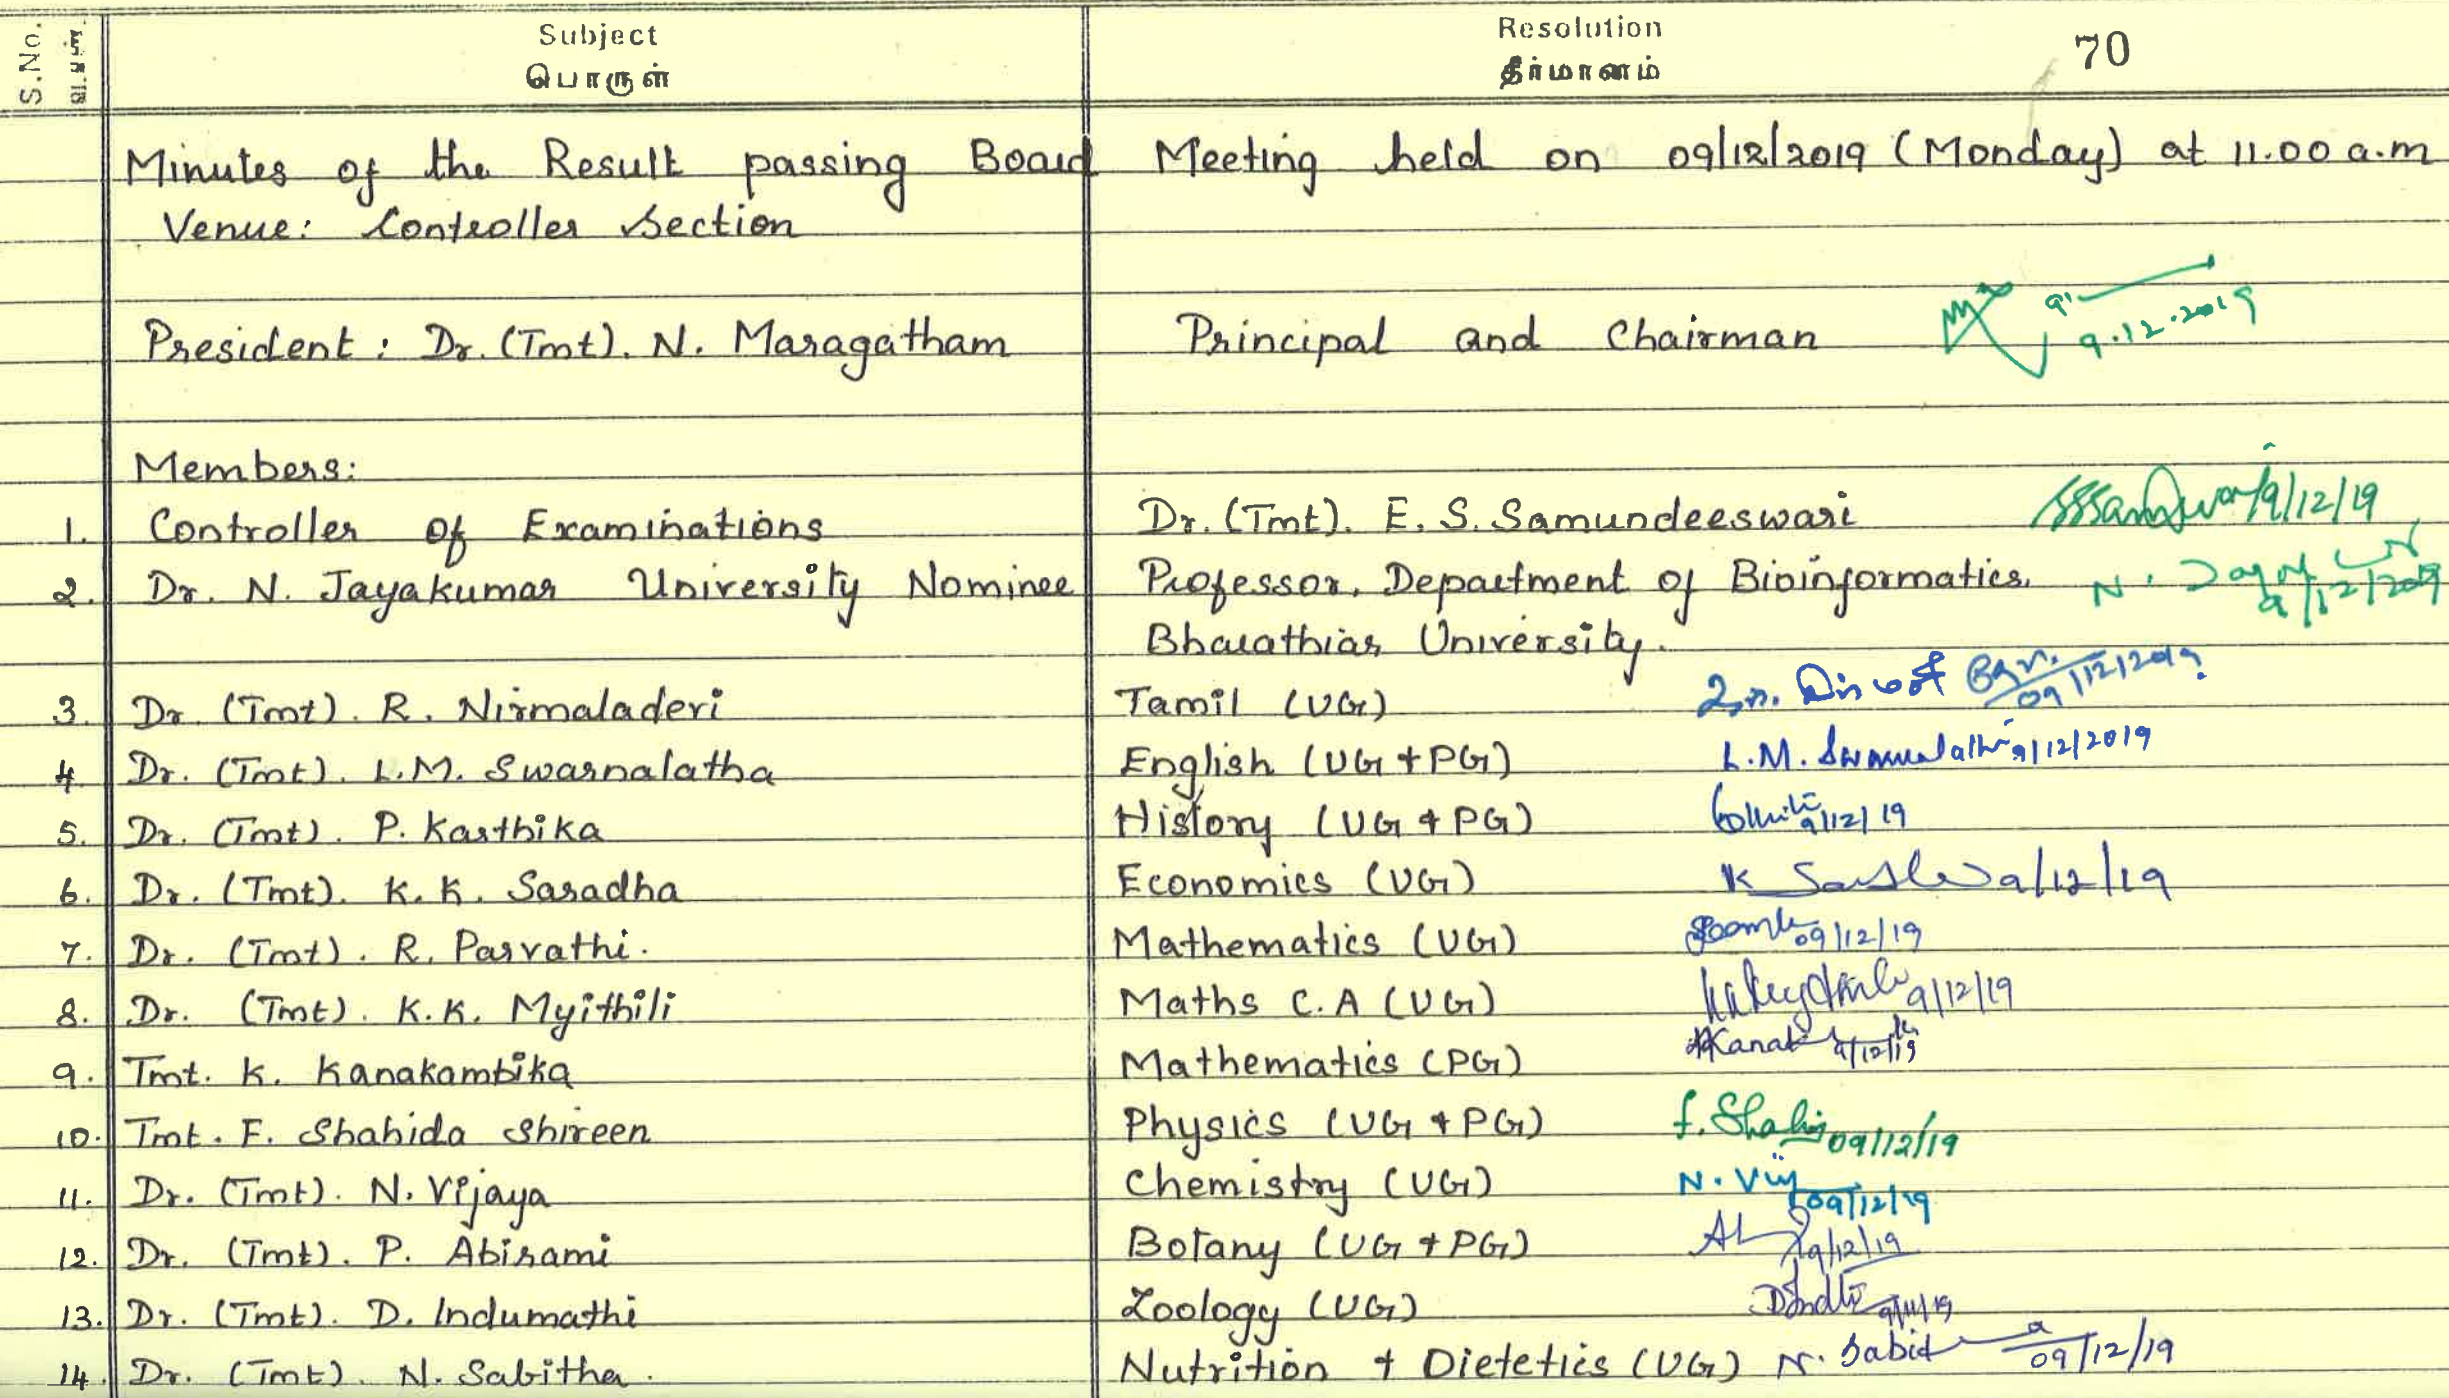 S.No. Subject Resolution 70
பொருள் தீர்மானம்
Minutes of the Result passing Board Meeting held on 09/12/2019 (Monday) at 11.00 a.m
Venue: Controller Section
President : Dr. (Tmt). N. Maragatham Principal and Chairman 9.12.2019
Members:
1. Controller of Examinations Dr. (Tmt). E. S. Samundeeswari 9/12/19
2. Dr. N. Jayakumar University Nominee Professor, Department of Bioinformatics. N. 9/12/2019
Bharathiar University.
3. Dr. (Tmt). R. Nirmaladevi Tamil (UG) 09/12/2019
4. Dr. (Tmt). L.M. Swarnalatha English (UG + PG) L.M. Swarnalatha 9/12/2019
5. Dr. (Tmt). P. Karthika History (UG + PG) 9/12/19
6. Dr. (Tmt). K. K. Saradha Economics (UG) 9/12/19
7. Dr. (Tmt). R. Parvathi. Mathematics (UG) 09/12/19
8. Dr. (Tmt). K.K. Myithili Maths C.A (UG) 9/12/19
9. Tmt. K. Kanakambika Mathematics (PG) 9/12/19
10. Tmt. F. Shahida Shireen Physics (UG + PG) f. 09/12/19
11. Dr. (Tmt). N. Vijaya Chemistry (UG) N. Vij 09/12/19
12. Dr. (Tmt). P. Abirami Botany (UG + PG) 9/12/19
13. Dr. (Tmt). D. Indumathi Zoology (UG)
14. Dr. (Tmt). N. Sabitha. Nutrition + Dietetics (UG) N. Sabitha 09/12/19